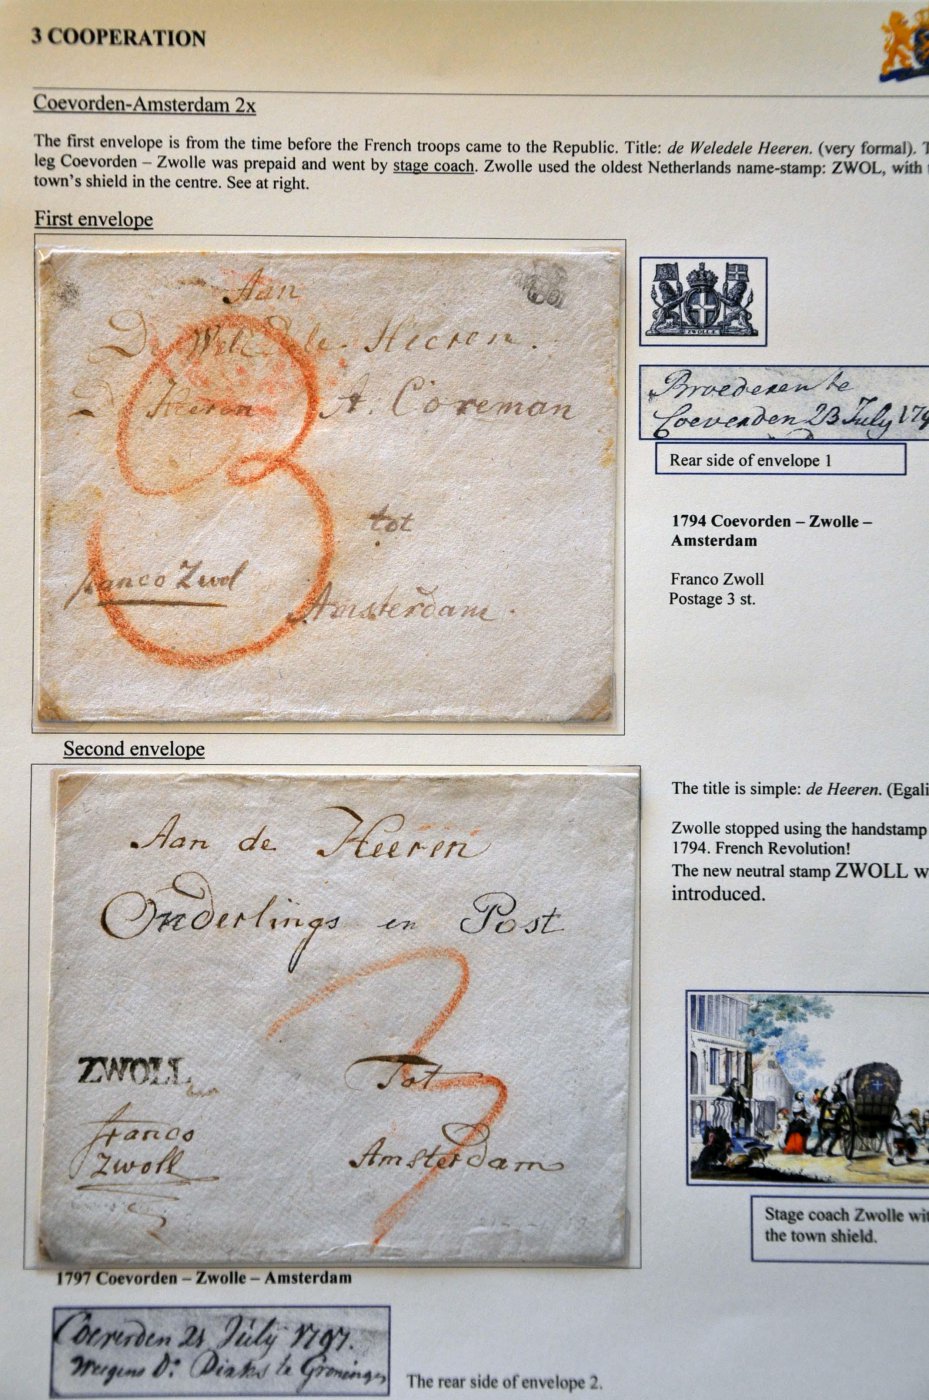 3 COOPERATION
Coevorden-Amsterdam 2x
The first envelope is from the time before the French troops came to the Republic. Title: de Weledele Heeren. (very formal).
leg Coevorden – Zwolle was prepaid and went by stage coach. Zwolle used the oldest Netherlands name-stamp: ZWOL, with
town's shield in the centre. See at right.
First envelope
Aan
De Wel Edele Heeren.
D Heeren A. Coreman
tot
franco Zwol
Amsterdam.
ZWOLLE
Broederen te
Coeverden 23 July 179
Rear side of envelope 1
1794 Coevorden – Zwolle –
Amsterdam
Franco Zwoll
Postage 3 st.
Second envelope
Aan de Heeren
Onderlings en Post
ZWOLL
Tot
franco
Zwoll
Amsterdam
3
The title is simple: de Heeren. (Egali
Zwolle stopped using the handstamp
1794. French Revolution!
The new neutral stamp ZWOLL w
introduced.
Stage coach Zwolle wit
the town shield.
1797 Coevorden – Zwolle – Amsterdam
Coeverden 21 July 1797.
Weegens Ds Dirks te Groningen
The rear side of envelope 2.